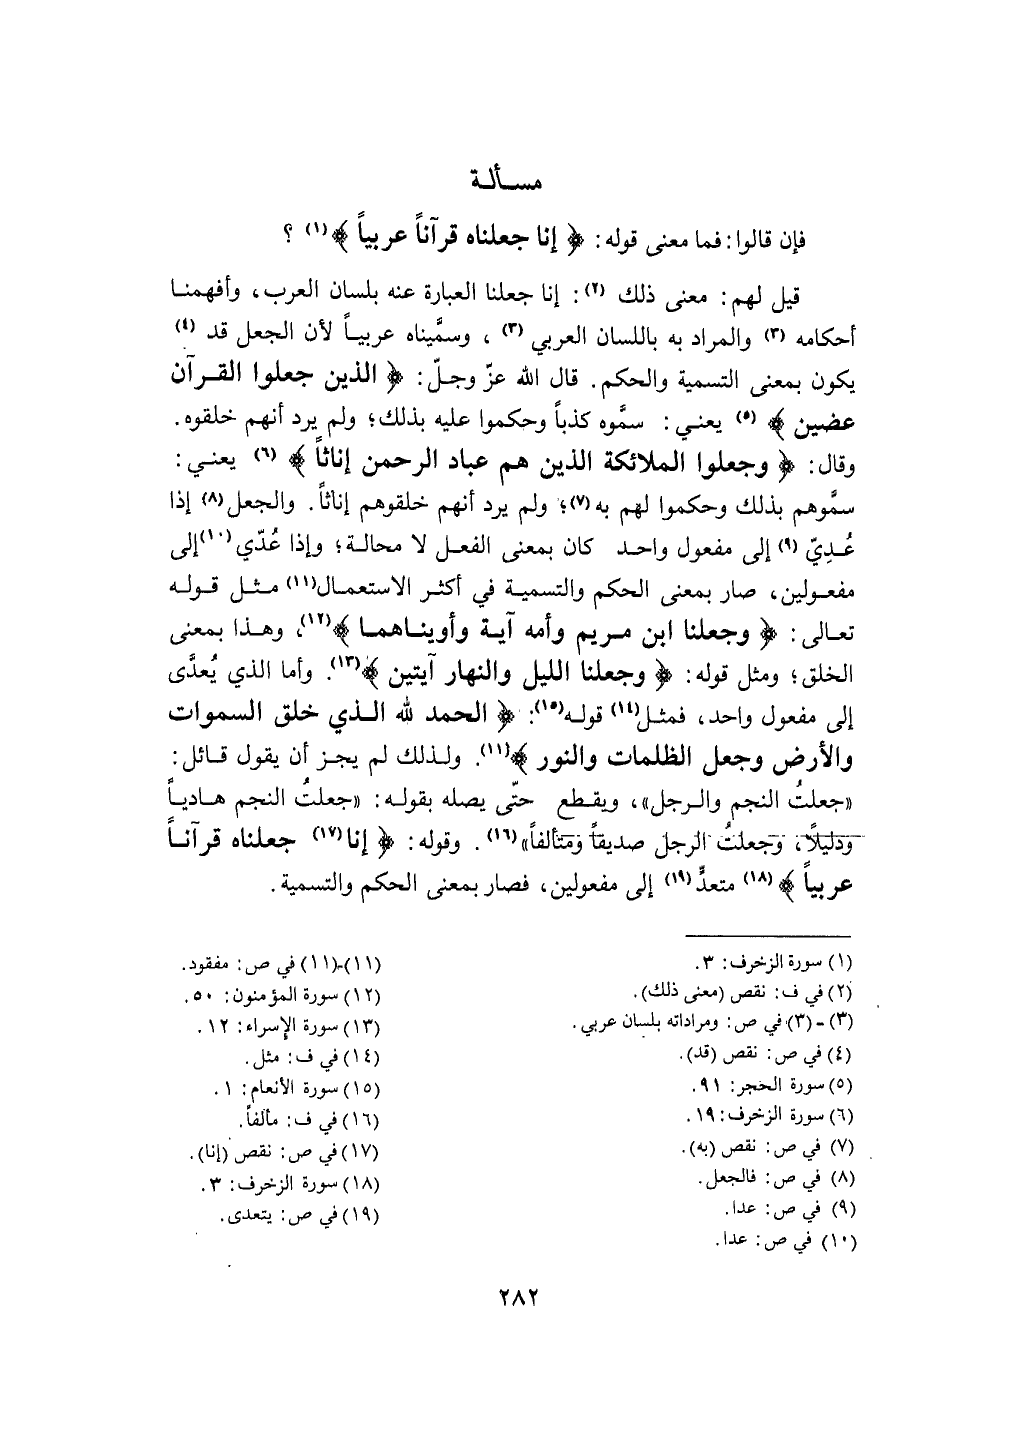 مسألة
فإن قالوا: فما معنى قوله: ﴿ إنا جعلناه قرآناً عربياً ﴾(١) ؟
قيل لهم: معنى ذلك (٢): إنا جعلنا العبارة عنه بلسان العرب، وأفهمنا
أحكامه (٣) والمراد به باللسان العربي (٣) ، وسمَّيناه عربياً لأن الجعل قد (٤)
يكون بمعنى التسمية والحكم. قال الله عزّ وجلّ: ﴿ الذين جعلوا القرآن
عضين ﴾ (٥) يعني: سمَّوه كذباً وحكموا عليه بذلك؛ ولم يرد أنهم خلقوه.
وقال: ﴿ وجعلوا الملائكة الذين هم عباد الرحمن إناثاً ﴾ (٦) يعني:
سمَّوهم بذلك وحكموا لهم به(٧)؛ ولم يرد أنهم خلقوهم إناثاً. والجعل(٨) إذا
عُدِيّ (٩) إلى مفعول واحد كان بمعنى الفعل لا محالة؛ وإذا عُدّي (١٠)إلى
مفعولين، صار بمعنى الحكم والتسمية في أكثر الاستعمال(١١) مثل قوله
تعالى: ﴿ وجعلنا ابن مريم وأمه آية وأويناهما ﴾(١٢)، وهذا بمعنى
الخلق؛ ومثل قوله: ﴿ وجعلنا الليل والنهار آيتين ﴾(١٣). وأما الذي يُعدَّى
إلى مفعول واحد، فمثل(١٤) قوله(١٥): ﴿ الحمد لله الذي خلق السموات
والأرض وجعل الظلمات والنور ﴾(١١). ولذلك لم يجز أن يقول قائل:
«جعلتُ النجم والرجل»، ويقطع حتّى يصله بقوله: «جعلتُ النجم هادياً
ودليلاً، وجعلتُ الرجل صديقاً ومتألفاً»(١٦). وقوله: ﴿ إنا(١٧) جعلناه قرآناً
عربياً ﴾ (١٨) متعدٍّ (١٩) إلى مفعولين، فصار بمعنى الحكم والتسمية.
(١) سورة الزخرف: ٣.
(٢) في ف: نقص (معنى ذلك).
(٣) - (٣) في ص: ومراداته بلسان عربي.
(٤) في ص: نقص (قد).
(٥) سورة الحجر: ٩١.
(٦) سورة الزخرف: ١٩.
(٧) في ص: نقص (به).
(٨) في ص: فالجعل.
(٩) في ص: عدا.
(١٠) في ص: عدا.
(١١)-(١١) في ص: مفقود.
(١٢) سورة المؤمنون: ٥٠.
(١٣) سورة الإسراء: ١٢.
(١٤) في ف: مثل.
(١٥) سورة الأنعام: ١.
(١٦) في ف: مألفاً.
(١٧) في ص: نقص (إنا).
(١٨) سورة الزخرف: ٣.
(١٩) في ص: يتعدى.
٢٨٢